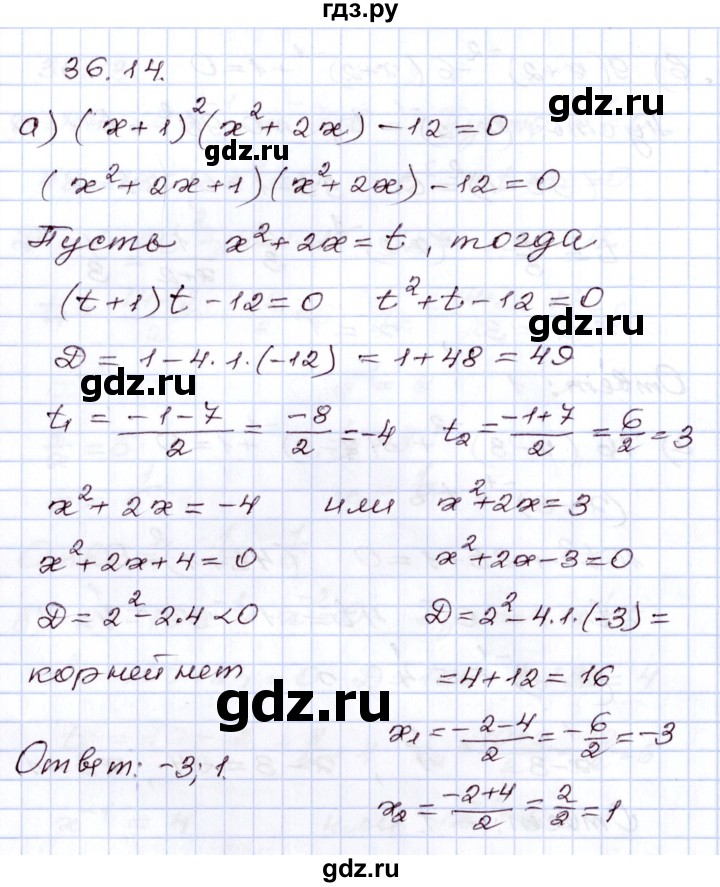 гдз.ру
36.14.
а) (x+1)²(x²+2x)-12=0
gdz.ru
(x²+2x+1)(x²+2x)-12=0
Пусть x²+2x=t, тогда
gdz.ru
(t+1)t-12=0 t²+t-12=0
gdz.ru
D=1-4·1·(-12)=1+48=49
gdz.ru
t₁=(-1-7)/2=-8/2=-4 t₂=(-1+7)/2=6/2=3
gdz.ru
x²+2x=-4 или x²+2x=3
x²+2x+4=0 x²+2x-3=0
D=2²-2·4<0 D=2²-4·1·(-3)=
корней нет =4+12=16
gdz.ru
x₁=(-2-4)/2=-6/2=-3
Ответ: -3; 1.
x₂=(-2+4)/2=2/2=1
gdz.ru
gdz.ru